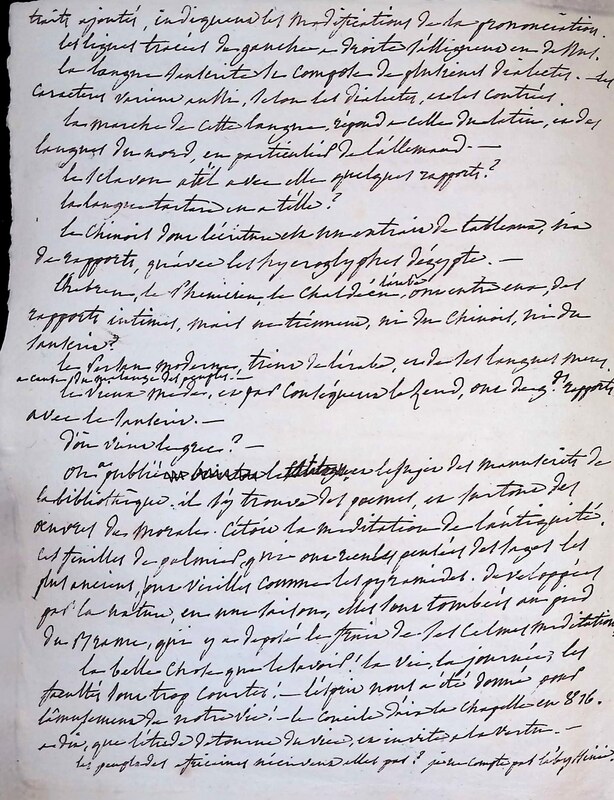 traits ajoutés, indiquera les modifications de la prononciation.
les lignes tracées de gauche a droite s'alligneront en dessus.
la langue sanscrite se compose de plusieurs dialectes. — les
caracteres varient aussi, selon les dialectes, et les contrées.
la marche de cette langue, repond a celle du latin, et des
langues du nord, en particulier de l'allemand. —
le sclavon a t'il avec elle quelques rapports?
la langue tartare en a t'elle?
le chinois dont l'écriture est un extrait de tableaux, n'a
de rapports, qu'avec les hyeroglyphes d'égypte. —
l'hebreu, le phenicien, le chaldéen, l'arabe, ont entr'eux, des
rapports intimes, mais ne tiennent, ni du chinois, ni du
sanscrit?
le persan moderne, tient de l'arabe, et de ses langues meres,
a cause du mélange des peuples. —
le vieux mede, et par consequent le zend, ont de gds rapports
avec le sanscrit. —
d'où vient le grec? —
on a publié le sujet des manuscrits de
la bibliothèque. il s'y trouve des poemes, et surtout des
œuvres de morale. c'étoit la méditation de l'antiquité
ces feuilles de palmier, qui ont reçu les pensées des sages les
plus anciens, sont vieilles comme les pyramides. developpées
par la nature, en une saison, elles sont tombées au pied
du Brame, qui y a deposé le fruit de ses calmes meditations
la belle chose que le savoir! la vie, la journée, les
facultés sont trop courtes. — l'esprit nous a été donné pour
l'amusement de notre vie! — le concile d'aix la chapelle en 816.
a dit, que l'étude detourne du vice, et invite a la vertu. —
les peuplades affricaines n'ecrivent elles pas? je ne compte pas l'abyssinie.